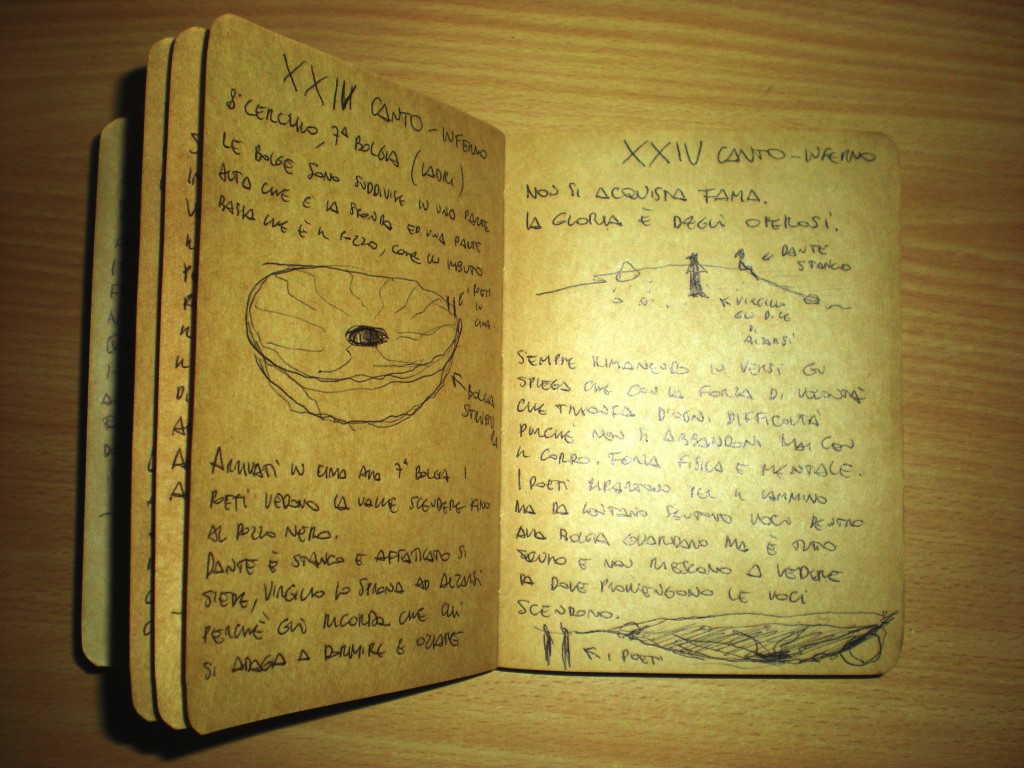 XXIV CANTO - INFERNO
8° CERCHIO, 7ª BOLGIA (LADRI)
LE BOLGE SONO SUDDIVISE IN UNA PARTE
ALTA CHE È LA SPONDA ED UNA PARTE
BASSA CHE È IL POZZO, COME UN IMBUTO
I POETI
IN
CIMA.
BOLGIA
ARRIVATI IN CIMA ALLA 7ª BOLGIA I
POETI VEDONO LA VALLE SCENDERE FINO
AL POZZO NERO.
DANTE È STANCO E AFFATICATO SI
SIEDE, VIRGILIO LO SPRONA AD ALZARSI
PERCHÈ GLI RICORDA CHE CHI
SI ADAGA A DORMIRE E OZIARE
XXIV CANTO - INFERNO
NON SI ACQUISTA FAMA.
LA GLORIA È DEGLI OPEROSI.
DANTE
STANCO
VIRGILIO
GLI DICE
DI
ALZARSI
SEMPRE RIMANENDO IN VERSI GLI
SPIEGA CHE CON LA FORZA DI VOLONTÀ
CHE TRIONFA D'OGNI DIFFICOLTÀ
PURCHÈ NON SI ABBANDONI MAI CON
IL CORPO. FORZA FISICA E MENTALE.
I POETI RIPARTONO PER IL CAMMINO
MA DA LONTANO SENTONO VOCI DENTRO
ALLA BOLGIA GUARDANO MA È TUTTO
SCURO E NON RIESCONO A VEDERE
DA DOVE PROVENGONO LE VOCI
SCENDONO.
I POETI